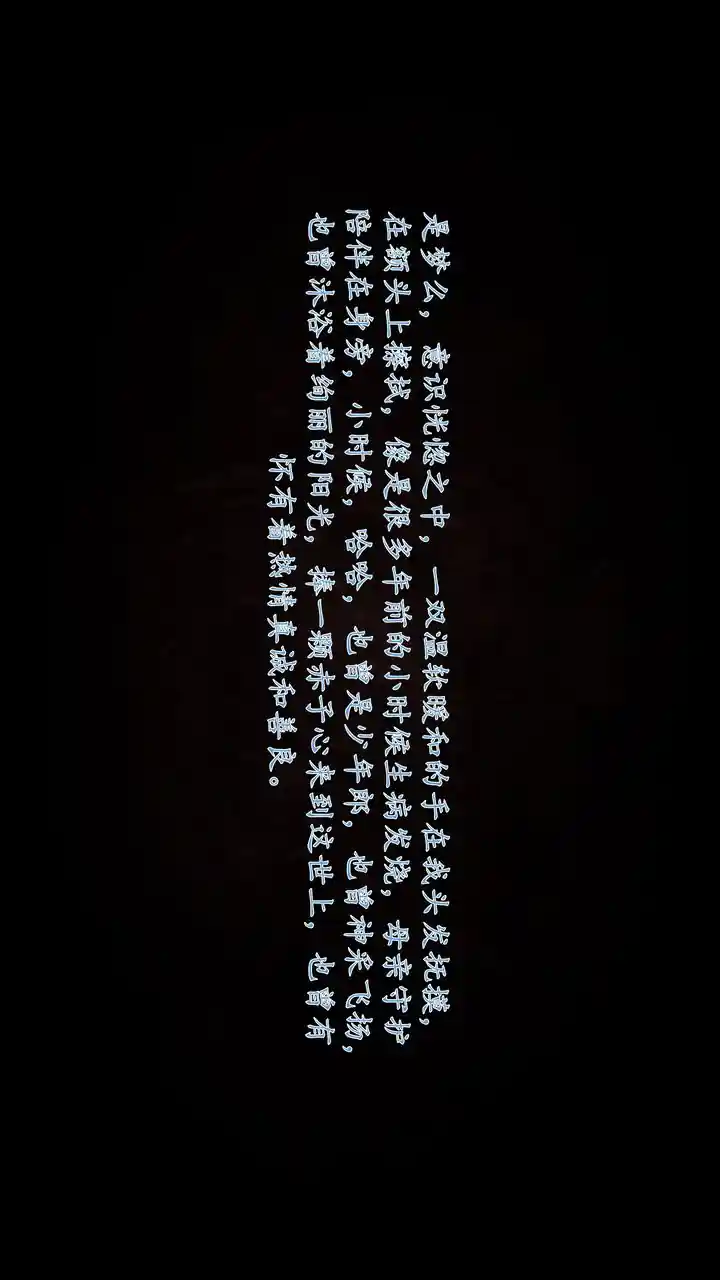 是梦么，意识恍惚之中，一双温软暖和的手在我头发抚摸，
在额头上擦拭，像是很多年前的小时候生病发烧，母亲守护
陪伴在身旁，小时候，哈哈，也曾是少年郎，也曾神采飞扬，
也曾沐浴着绚丽的阳光，捧一颗赤子心来到这世上，也曾有
怀有着热情真诚和善良。